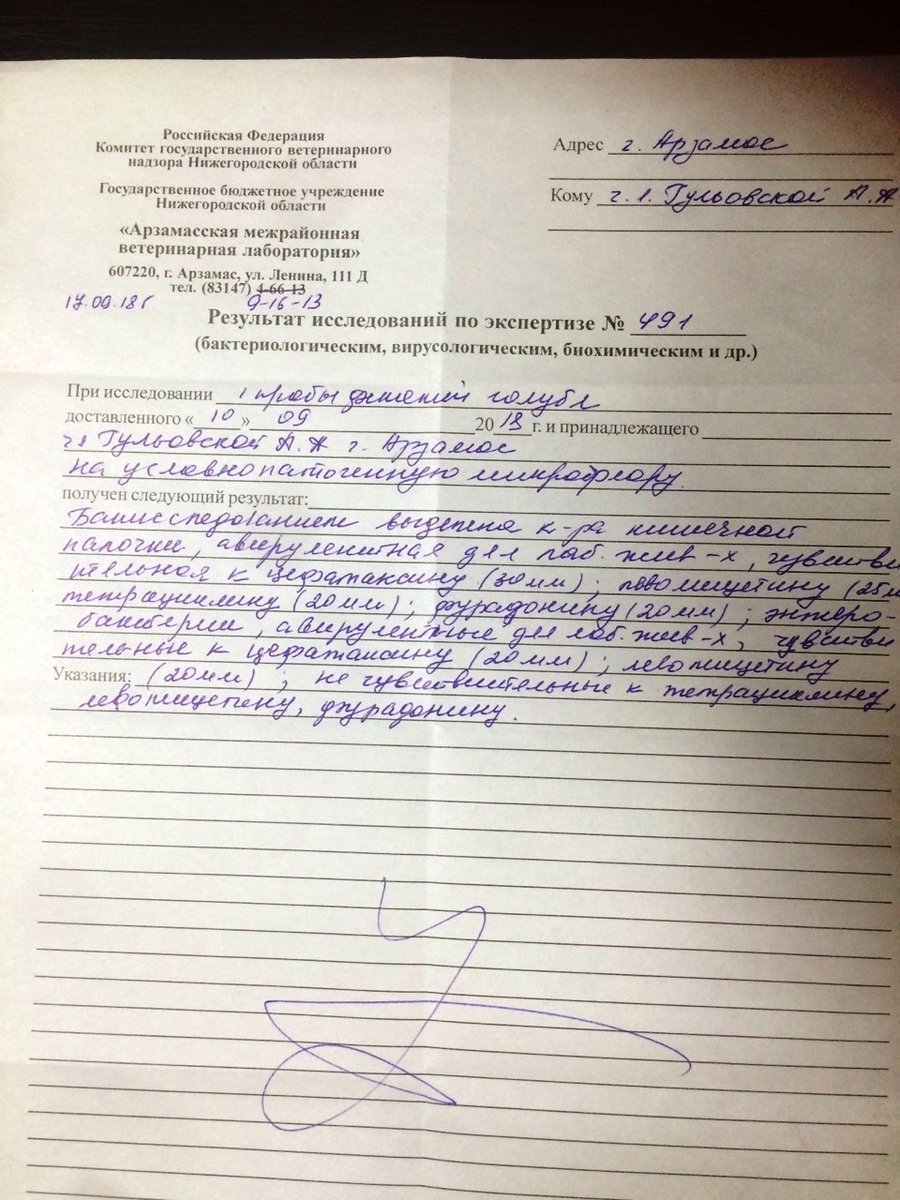 Российская Федерация
Комитет государственного ветеринарного
надзора Нижегородской области
Государственное бюджетное учреждение
Нижегородской области
«Арзамасская межрайонная
ветеринарная лаборатория»
607220, г. Арзамас, ул. Ленина, 111 Д
тел. (83147) 4-66-13
17.09.18г 9-16-13
Адрес г. Арзамас
Кому ч.л. Гульовской А.А
Результат исследований по экспертизе № 491
(бактериологическим, вирусологическим, биохимическим и др.)
При исследовании 1 пробы фекалий голубя
доставленного « 10 » 09 2018 г. и принадлежащего
чл Гульовской А.А г. Арзамас
на условнопатогенную микрофлору.
получен следующий результат:
Бакисследованием выделена к-ра кишечной
палочки, авирулентная для лаб. жив-х, чувстви
тельная к цефатаксину (30мм); левомицетину (25м
тетрациклину (20мм); фурадонину (20мм); энтеро-
бактерии, авирулентные для лаб. жив-х, чувстви
тельные к цефатаксину (20мм), левомицетину
Указания: (20мм); не чувствительные к тетрациклину,
левомицетину, фурадонину.